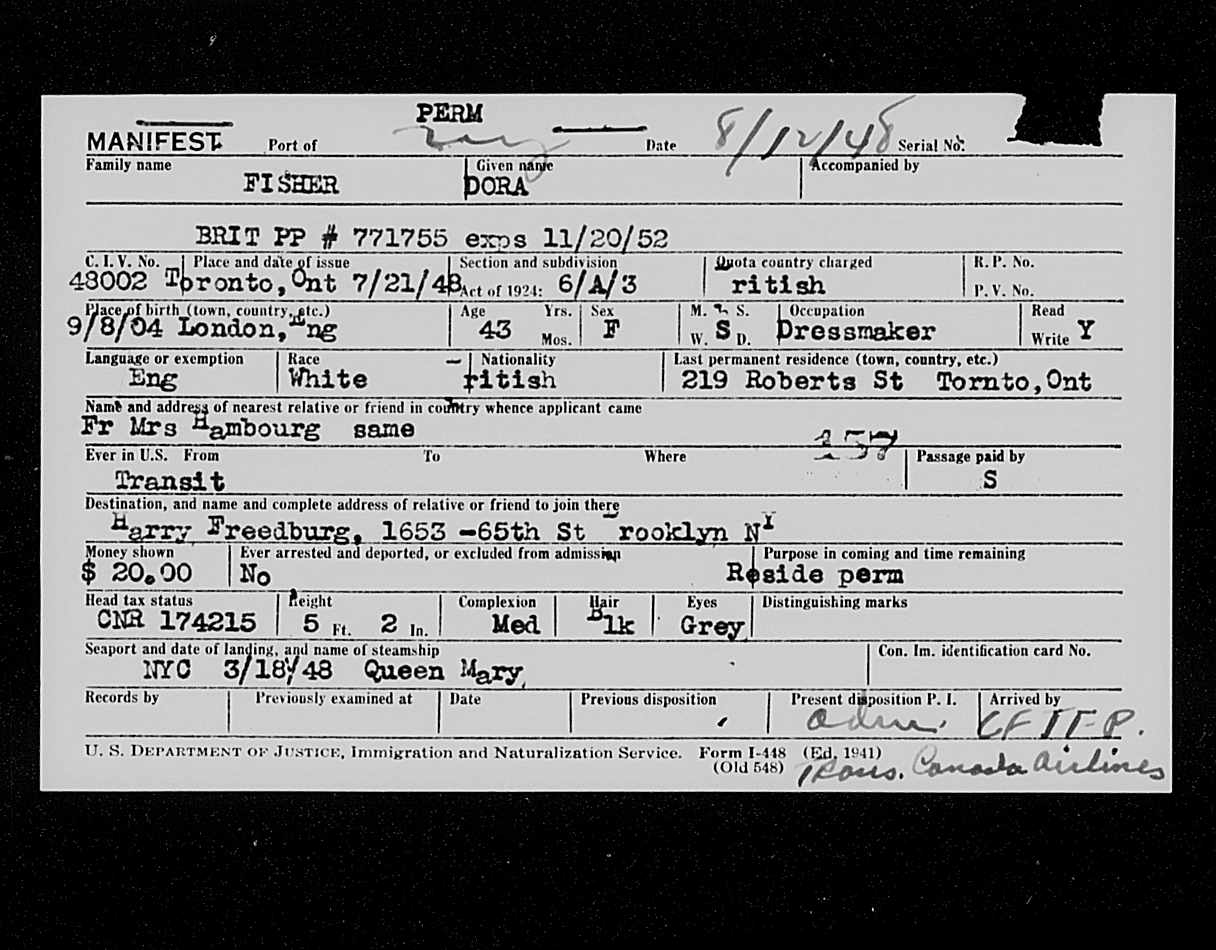 PERM
MANIFEST Port of Date 8/12/48 Serial No.
Family name Given name Accompanied by
FISHER DORA
BRIT PP # 771755 exps 11/20/52
C. I. V. No. Place and date of issue Section and subdivision Quota country charged R. P. No.
48002 Toronto, Ont 7/21/48 Act of 1924: 6/A/3 ritish P. V. No.
Place of birth (town, country, etc.) Age Yrs. Sex M. S. Occupation Read
9/8/04 London, Eng 43 Mos. F W. S D. Dressmaker Write Y
Language or exemption Race Nationality Last permanent residence (town, country, etc.)
Eng White ritish 219 Roberts St Tornto, Ont
Name and address of nearest relative or friend in country whence applicant came
Fr Mrs Hambourg same
157
Ever in U.S. From To Where Passage paid by
Transit S
Destination, and name and complete address of relative or friend to join there
Harry Freedburg, 1653 -65th St rooklyn NY
Money shown Ever arrested and deported, or excluded from admission Purpose in coming and time remaining
$ 20.00 No Reside perm
Head tax status Height Complexion Hair Eyes Distinguishing marks
CNR 174215 5 Ft. 2 In. Med Blk Grey
Seaport and date of landing, and name of steamship Con. Im. identification card No.
NYC 3/18/48 Queen Mary
Records by Previously examined at Date Previous disposition Present disposition P. I. Arrived by
adm.
U. S. DEPARTMENT OF JUSTICE, Immigration and Naturalization Service. Form I-448 (Ed. 1941)
(Old 548) Trans. Canada Airlines